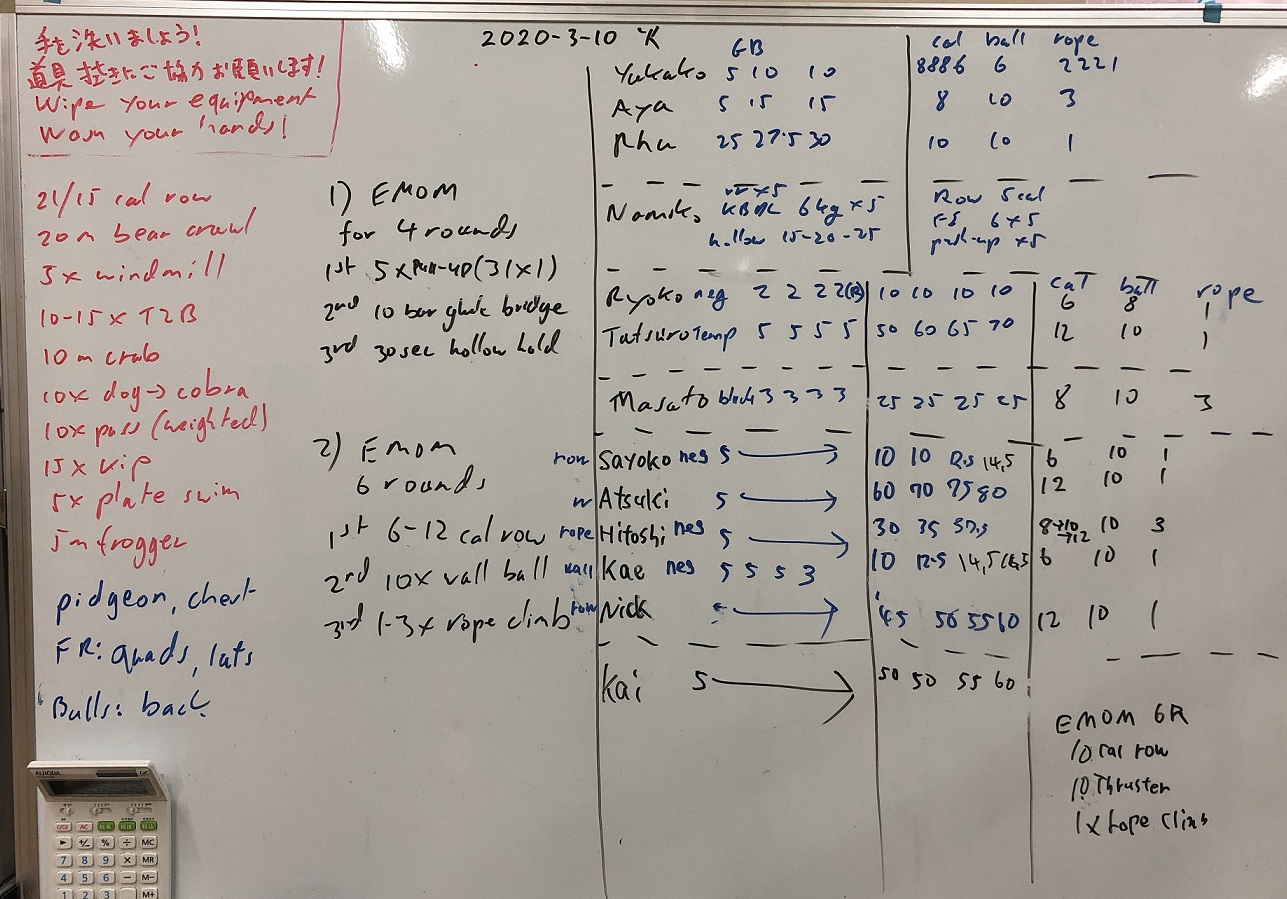 手を洗いましょう!
道具拭きにご協力お願いします!
Wipe your equipment
Wash your hands!
21/15 cal row
20m bear crawl
3x windmill
10-15x T2B
10m crab
10x dog→cobra
10x pass (weighted)
15x kip
5x plate swim
5m frogger
pidgeon, chest
FR: quads, lats
Balls: back
2020-3-10 火
1) EMOM
for 4 rounds
1st 5xpull-up (31x1)
2nd 10 bar glute bridge
3rd 30sec hollow hold
2) EMOM
6 rounds
1st 6-12 cal row
2nd 10x wall ball
3rd 1-3x rope climb
GB cal ball rope
Yukako 5 10 10 8886 6 2221
Aya 5 15 15 8 10 3
Rhu 25 27.5 30 10 10 1
Namiko x5
KBDL 6kg x5
hollow 15-20-25
Row 5cal
FS 6x5
push-up x5
cal ball rope
Ryoko neg 2 2 2 2(R) 10 10 10 10 6 8 1
Tatsuro Temp 5 5 5 5 50 60 65 70 12 10 1
Masato black 3 3 3 3 25 25 25 25 8 10 3
row Sayoko neg 5 → 10 10 12.5 14,5 6 10 1
Atsuki 5 → 60 70 75 80 12 10 1
rope Hitoshi neg 5 → 30 35 37.5 8→10→12 10 3
wall Kae neg 5 5 5 3 10 12.5 14,5 6 10 1
row Nick → 45 50 55 60 12 10 1
Kai 5 → 50 50 55 60
EMOM 6R
10 cal row
10 Thruster
1x rope climb
AURORA
C/CE AC
► +/- % ÷ MC
7 8 9 × MR
4 5 6 − M−
1 2 3 M+